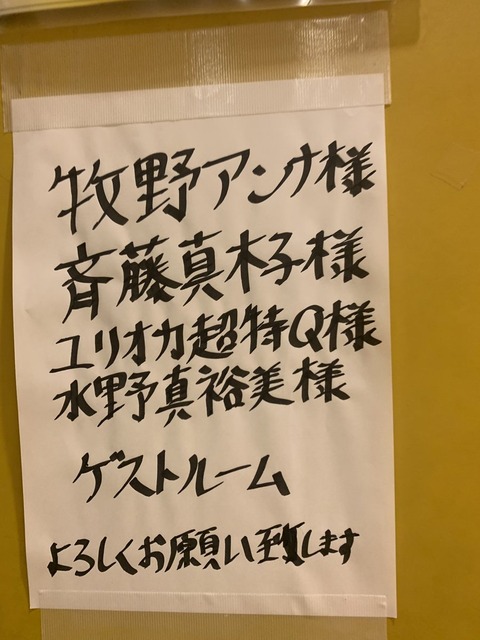 牧野アンナ様
斉藤真木子様
ユリオカ超特Q様
水野真裕美様
ゲストルーム
よろしくお願い致します